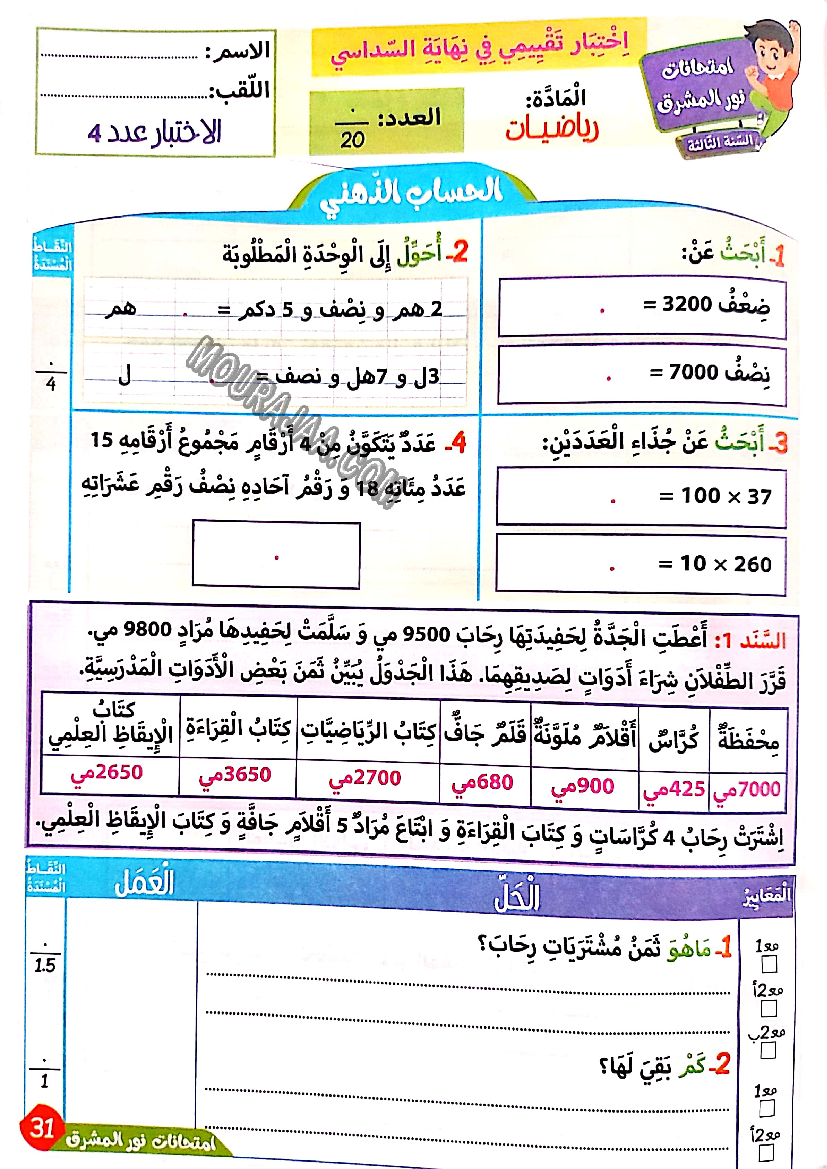 اِخْتِبَار تَقْيِيمِي فِي نِهَايَةِ السّداسي
امتحانات
نور المشرق
السّنة الثّالثة
الْمَادَّة:
رياضيات
العدد: . / 20
الاسم: ........................
اللّقب: ........................
الاختبار عدد 4
الحساب الذّهني
النّقَاط
الْمُسْنَدَة
1- أَبْحَثُ عَنْ:
ضِعْفُ 3200 = .
نِصْفُ 7000 = .
2- أُحَوِّلُ إِلَى الْوِحْدَةِ الْمَطْلُوبَة
2 هم و نِصْف و 5 دكم = . هم
3ل و 7هل و نصف = . ل
. / 4
3- أَبْحَثُ عَنْ جُذَاءِ الْعَدَدَيْنِ:
37 × 100 = .
260 × 10 = .
4- عَدَدٌ يَتَكَوَّنُ مِنْ 4 أَرْقَامٍ مَجْمُوعُ أَرْقَامِهِ 15
عَدَدُ مِئَاتِهِ 18 وَ رَقْمُ آحَادِهِ نِصْفُ رَقْمِ عَشَرَاتِهِ
.
MOURAJAA.COM
السَّنَد 1: أَعْطَتِ الْجَدَّةُ لِحَفِيدَتِهَا رِحَابَ 9500 مي وَ سَلَّمَتْ لِحَفِيدِهَا مُرَادٍ 9800 مي.
قَرَّرَ الطِّفْلاَنِ شِرَاءَ أَدَوَاتٍ لِصَدِيقِهِمَا. هَذَا الْجَدْوَلُ يُبَيِّنُ ثَمَنَ بَعْضِ الْأَدَوَاتِ الْمَدْرَسِيَّةِ.
مِحْفَظَةٌ كُرَّاسٌ أَقْلاَمٌ مُلَوَّنَةٌ قَلَمٌ جَافٌّ كِتَابُ الرِّيَاضِيَّاتِ كِتَابُ الْقِرَاءَةِ كِتَابُ الْإِيقَاظِ الْعِلْمِي
7000مي 425مي 900مي 680مي 2700مي 3650مي 2650مي
اِشْتَرَتْ رِحَابُ 4 كُرَّاسَاتٍ وَ كِتَابَ الْقِرَاءَةِ وَ ابْتَاعَ مُرَادٌ 5 أَقْلاَمٍ جَافَّةٍ وَ كِتَابَ الْإِيقَاظِ الْعِلْمِي.
الْمَعَايِيرُ الْحَلّ الْعَمَل النّقَاط الْمُسْنَدَة
1- مَاهُوَ ثَمَنُ مُشْتَرَيَاتِ رِحَابَ؟
مع1
مع2أ
مع2ب
. / 1.5
2- كَمْ بَقِيَ لَهَا؟
مع1
مع2أ
. / 1
31
امتحانات نور المشرق